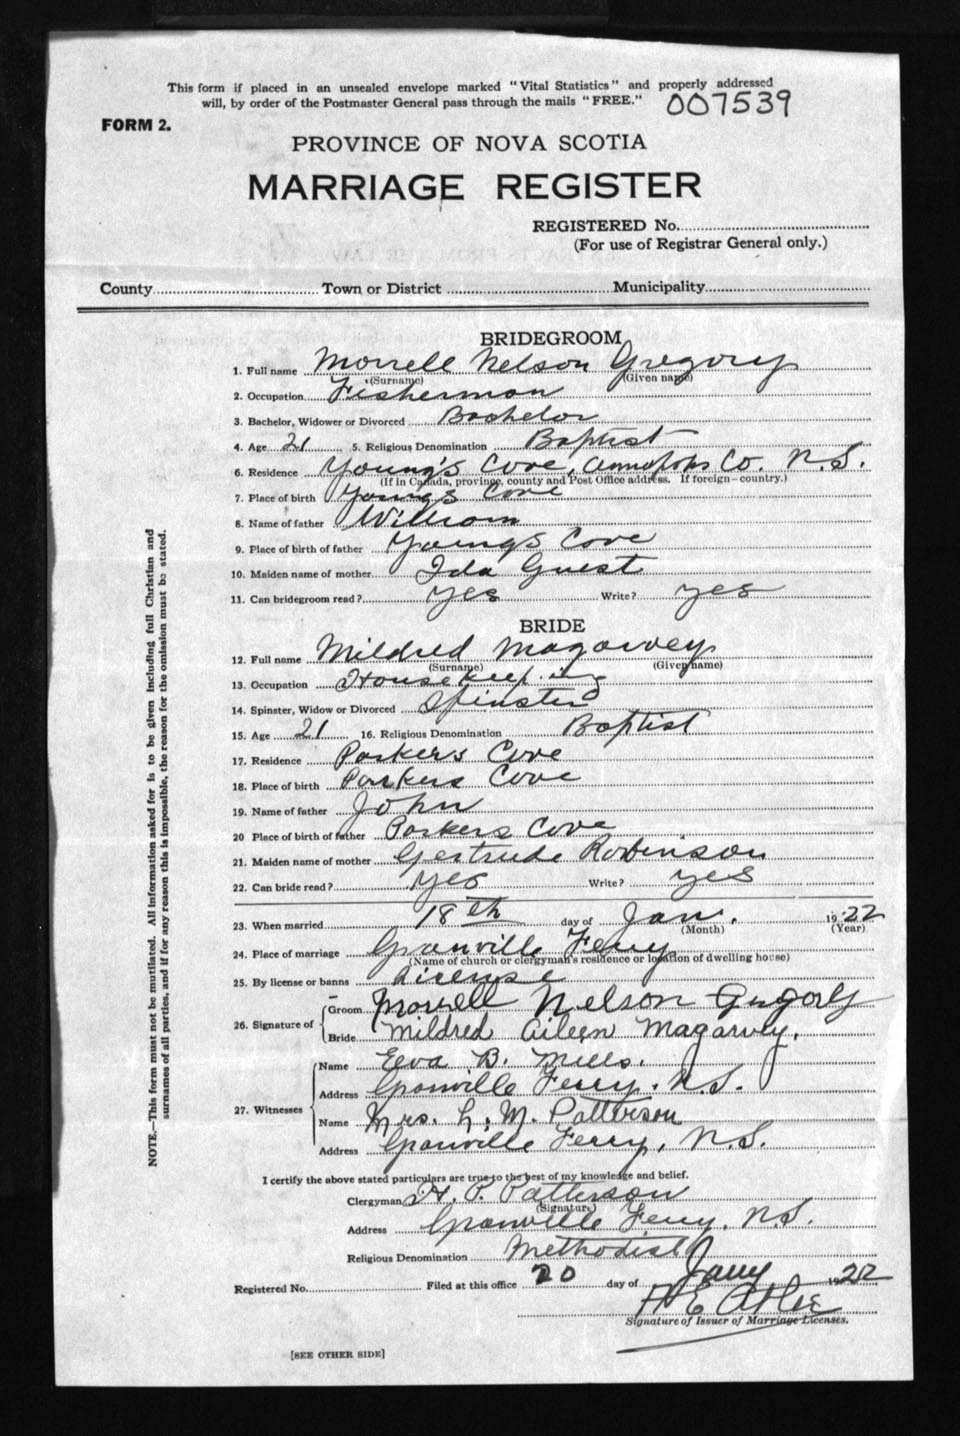 This form if placed in an unsealed envelope marked "Vital Statistics" and properly addressed
will, by order of the Postmaster General pass through the mails "FREE."
007539
FORM 2.
PROVINCE OF NOVA SCOTIA
MARRIAGE REGISTER
REGISTERED No.
(For use of Registrar General only.)
County Town or District Municipality
BRIDEGROOM
1. Full name Morrell Nelson Gregory
(Surname) (Given name)
2. Occupation Fisherman
3. Bachelor, Widower or Divorced Bachelor
4. Age 21 5. Religious Denomination Baptist
6. Residence Young's Cove, Annapolis Co. N.S.
(If in Canada, province, county and Post Office address. If foreign—country.)
7. Place of birth Youngs Cove
8. Name of father William
9. Place of birth of father Youngs Cove
10. Maiden name of mother Ida Guest
11. Can bridegroom read? yes Write? yes
BRIDE
12. Full name Mildred Magarvey
(Surname) (Given name)
13. Occupation Housekeeping
14. Spinster, Widow or Divorced Spinster
15. Age 21 16. Religious Denomination Baptist
17. Residence Parkers Cove
18. Place of birth Parkers Cove
19. Name of father John
20 Place of birth of father Parkers Cove
21. Maiden name of mother Gertrude Robinson
22. Can bride read? yes Write? yes
23. When married 18th day of Jan. 1922
(Month) (Year)
24. Place of marriage Granville Ferry
(Name of church or clergyman's residence or location of dwelling house)
25. By license or banns License
26. Signature of
Groom Morrell Nelson Gregory
Bride Mildred Aileen Magarvey.
27. Witnesses
Name Elva B. Mills.
Address Granville Ferry. N.S.
Name Mrs. L. M. Patterson
Address Granville Ferry, N.S.
I certify the above stated particulars are true to the best of my knowledge and belief.
Clergyman H. P. Patterson
(Signature)
Address Granville Ferry, N.S.
Religious Denomination Methodist
Registered No. Filed at this office 20 day of Jany 1922
H E
Signature of Issuer of Marriage Licenses.
[SEE OTHER SIDE]
NOTE.—This form must not be mutilated. All information asked for is to be given including full Christian and
surnames of all parties, and if for any reason this is impossible, the reason for the omission must be stated.